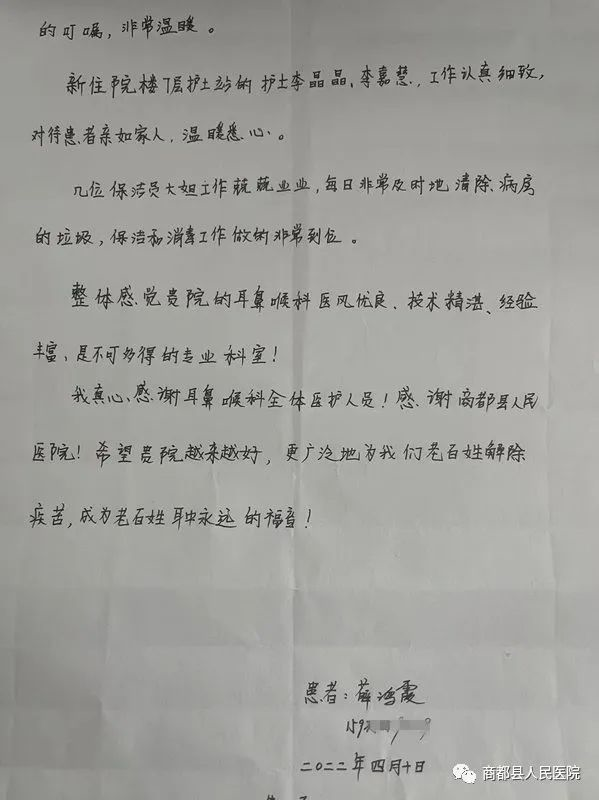 的叮嘱，非常温暖。
新住院楼7层护士站的护士李晶晶、李嘉慧，工作认真细致，
对待患者亲如家人，温暖患心。
几位保洁员大姐工作兢兢业业，每日非常及时地清除病房
的垃圾，保洁和消毒工作做的非常到位。
整体感觉贵院的耳鼻喉科医风优良、技术精湛、经验
丰富，是不可多得的专业科室！
我真心感谢耳鼻喉科全体医护人员！感谢商都县人民
医院！希望贵院越来越好，更广泛地为我们老百姓解除
疾苦，成为老百姓耳中永远的福音！
患者：薛鸿霞
二〇二二年四月十日
商都县人民医院